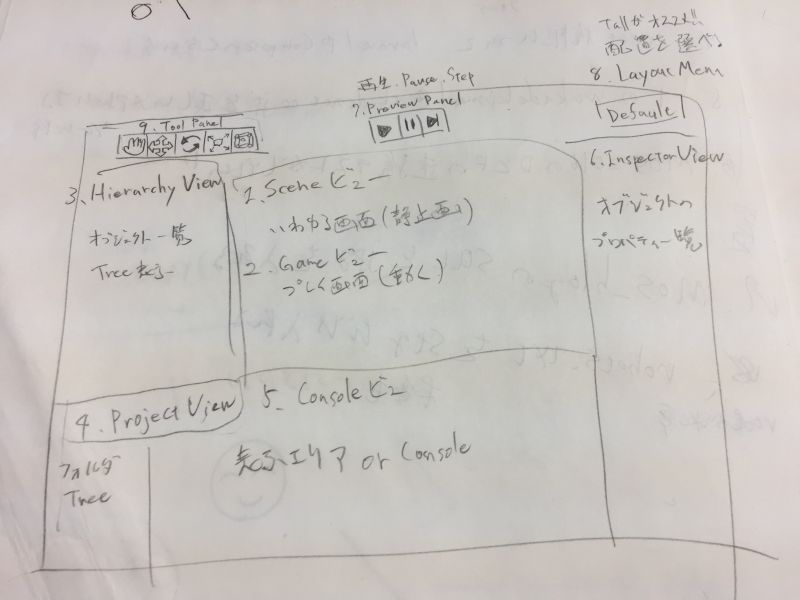 Tallがオススメ!!
配置を選べ!
8. Layout Menu
Default
再生. Pause. Step
7. Preview Panel
9. Tool Panel
3. Hierarchy View
オブジェクト一覧
Tree表示
1. Sceneビュー
いわゆる画面(静止画)
2. Gameビュー
プレイ画面(動く)
6. Inspector View
オブジェクトの
プロパティ一覧
4. Project View
フォルダ
Tree
5. Consoleビュー
表示エリア or Console